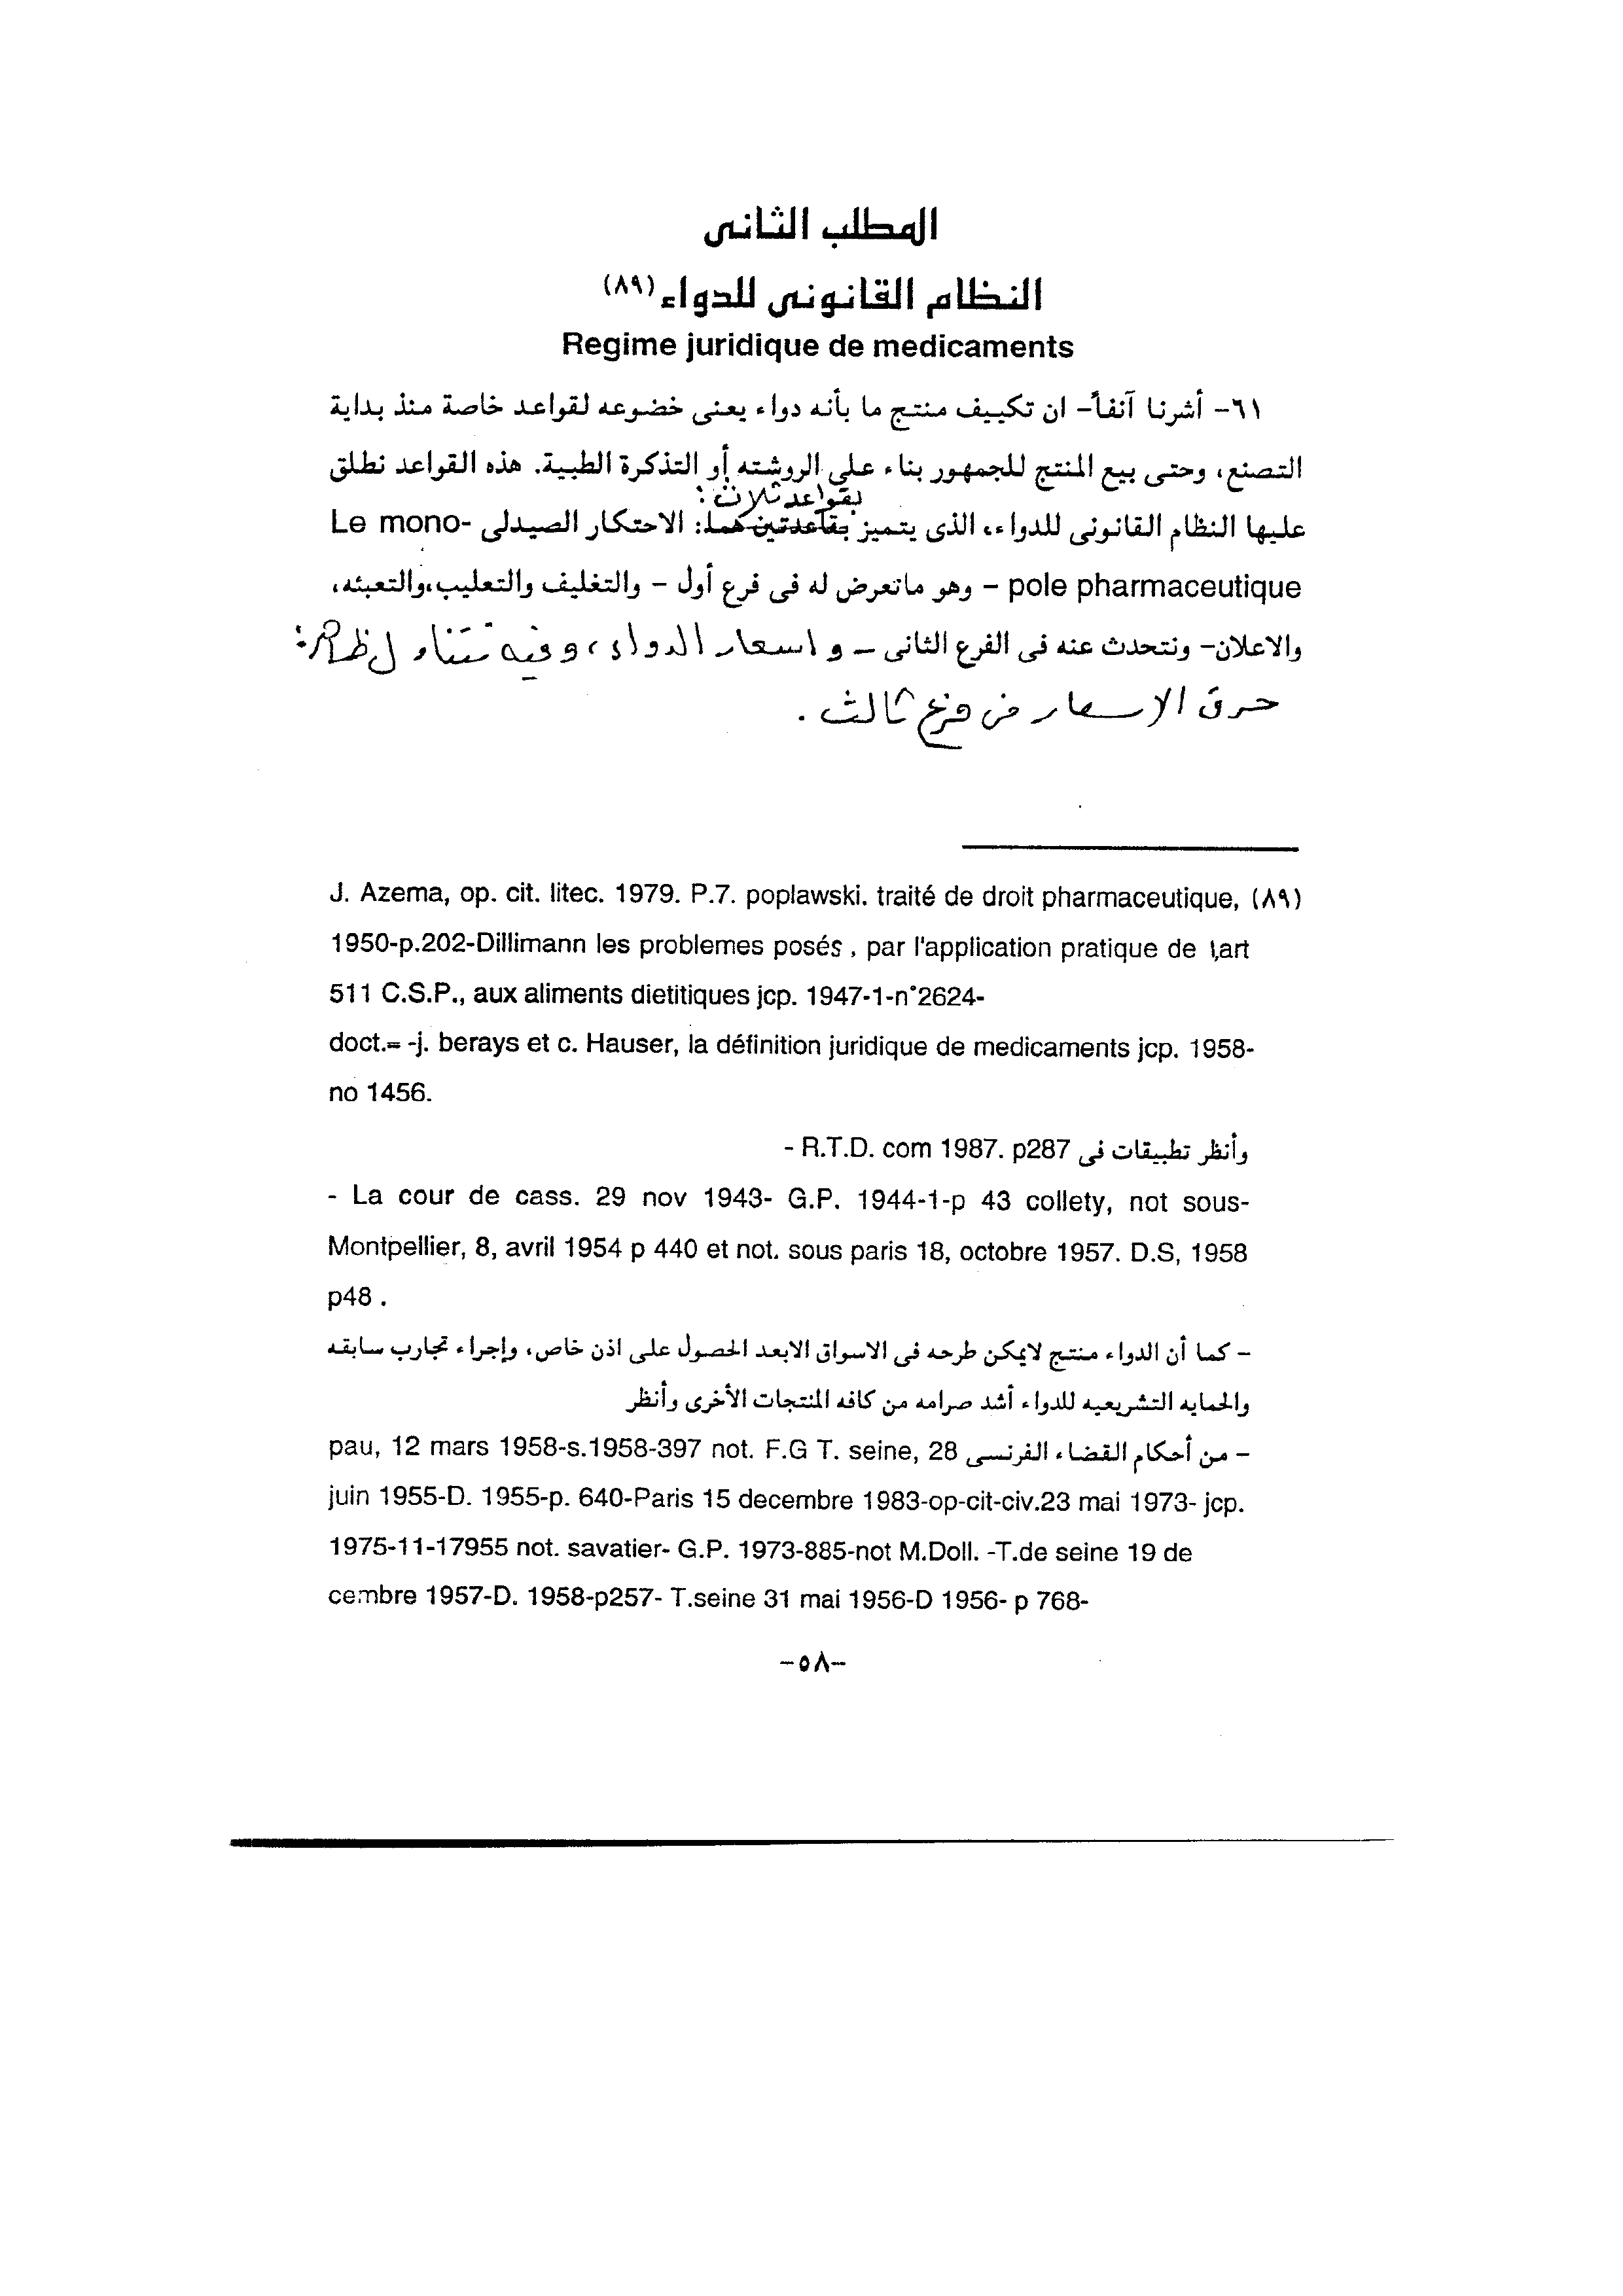 المطلب الثانى
النظام القانونى للدواء(٨٩)
Regime juridique de medicaments
٦١- أشرنا آنفاً- ان تكييف منتج ما بأنه دواء يعنى خضوعه لقواعد خاصة منذ بداية
التصنع، وحتى بيع المنتج للجمهور بناء على الروشته أو التذكرة الطبية. هذه القواعد نطلق
بقواعد ثلاث:
عليها النظام القانونى للدواء، الذى يتميز بقاعدتين هما: الاحتكار الصيدلى Le mono-
pole pharmaceutique – وهو مانعرض له فى فرع أول – والتغليف والتعليب،والتعبئه،
والاعلان- ونتحدث عنه فى الفرع الثانى – و اسعار الدواء، وفيه نتناول ظاهرة
حرق الاسعار فى فرع ثالث.
(٨٩) J. Azema, op. cit. litec. 1979. P.7. poplawski. traité de droit pharmaceutique,
1950-p.202-Dillimann les problemes posés , par l'application pratique de l,art
511 C.S.P., aux aliments dietitiques jcp. 1947-1-n°2624-
doct.= -j. berays et c. Hauser, la définition juridique de medicaments jcp. 1958-
no 1456.
وأنظر تطبيقات فى R.T.D. com 1987. p287 -
- La cour de cass. 29 nov 1943- G.P. 1944-1-p 43 collety, not sous-
Montpellier, 8, avril 1954 p 440 et not. sous paris 18, octobre 1957. D.S, 1958
p48 .
– كما أن الدواء منتج لايمكن طرحه فى الاسواق الابعد الحصول على اذن خاص، وإجراء تجارب سابقه
والحمايه التشريعيه للدواء أشد صرامه من كافه المنتجات الأخرى وأنظر
– من أحكام القضاء الفرنسى pau, 12 mars 1958-s.1958-397 not. F.G T. seine, 28
juin 1955-D. 1955-p. 640-Paris 15 decembre 1983-op-cit-civ.23 mai 1973- jcp.
1975-11-17955 not. savatier- G.P. 1973-885-not M.Doll. -T.de seine 19 de
cembre 1957-D. 1958-p257- T.seine 31 mai 1956-D 1956- p 768-
-٥٨-